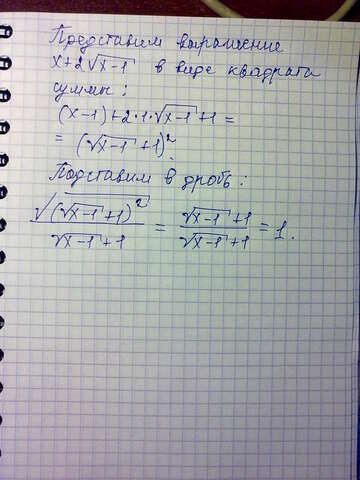 Представим выражение
x+2√x-1 в виде квадрата
суммы:
(x-1)+2·1·√x-1+1=
= (√x-1 +1)².
Подставим в дробь:
√(√x-1+1)² / √x-1+1 = √x-1+1 / √x-1+1 = 1.